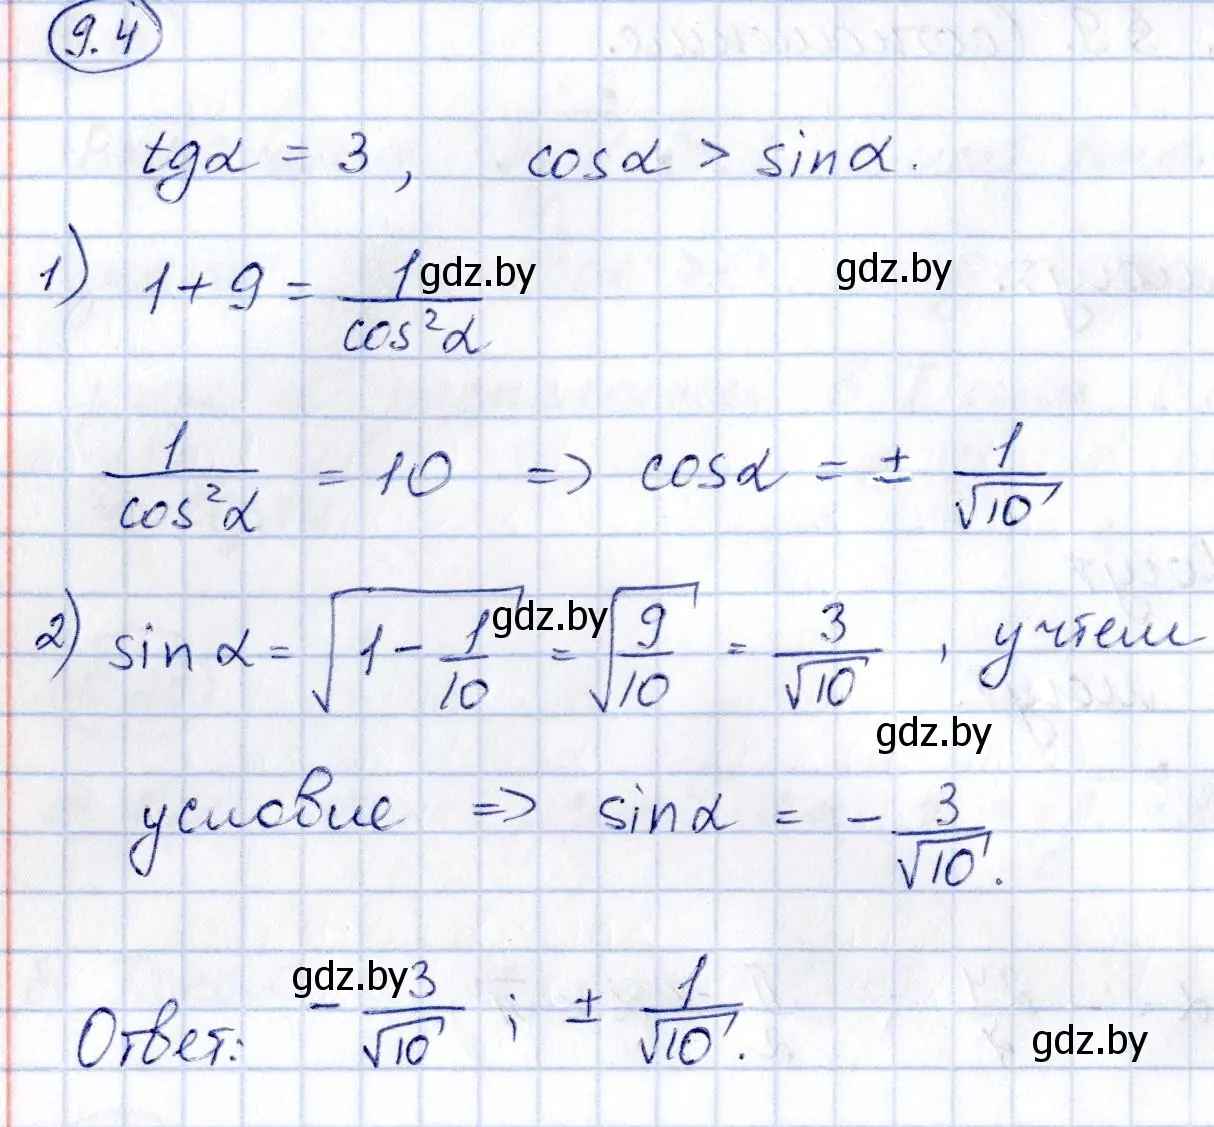 9.4
tgα = 3, cosα > sinα.
1) 1 + 9 = 1/cos²α gdz.by gdz.by
1/cos²α = 10 => cosα = ± 1/√10
2) sinα = √(1 - 1/10) = √(9/10) = 3/√10, учтем
gdz.by gdz.by
условие => sinα = - 3/√10.
gdz.by
Ответ: - 3/√10; ± 1/√10.
gdz.by